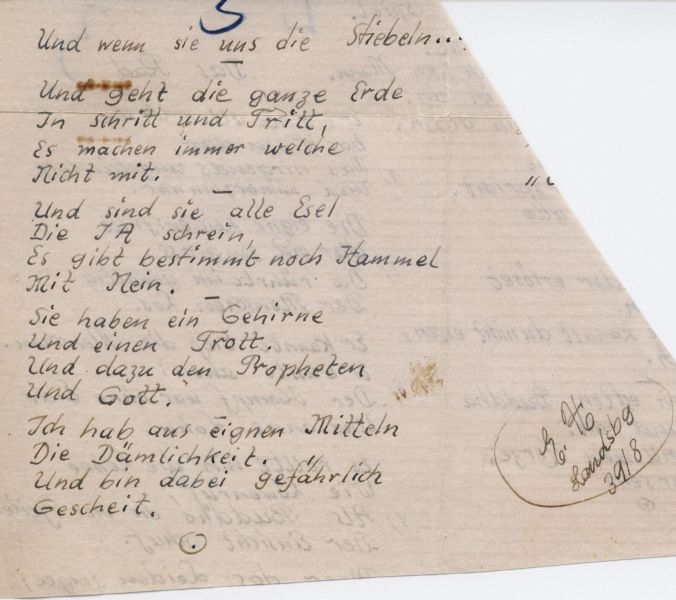 5
Und wenn sie uns die Stiebeln...
—
Und geht die ganze Erde
In schritt und Tritt,
Es machen immer welche
Nicht mit.
—
Und sind sie alle Esel
Die IA schrein,
Es gibt bestimmt noch Hammel
Mit Nein.
—
Sie haben ein Gehirne
Und einen Trott.
Und dazu den Propheten
Und Gott.
Ich hab aus eignen Mitteln
Die Dämlichkeit.
Und bin dabei gefährlich
Gescheit.
Landsbg
39/8